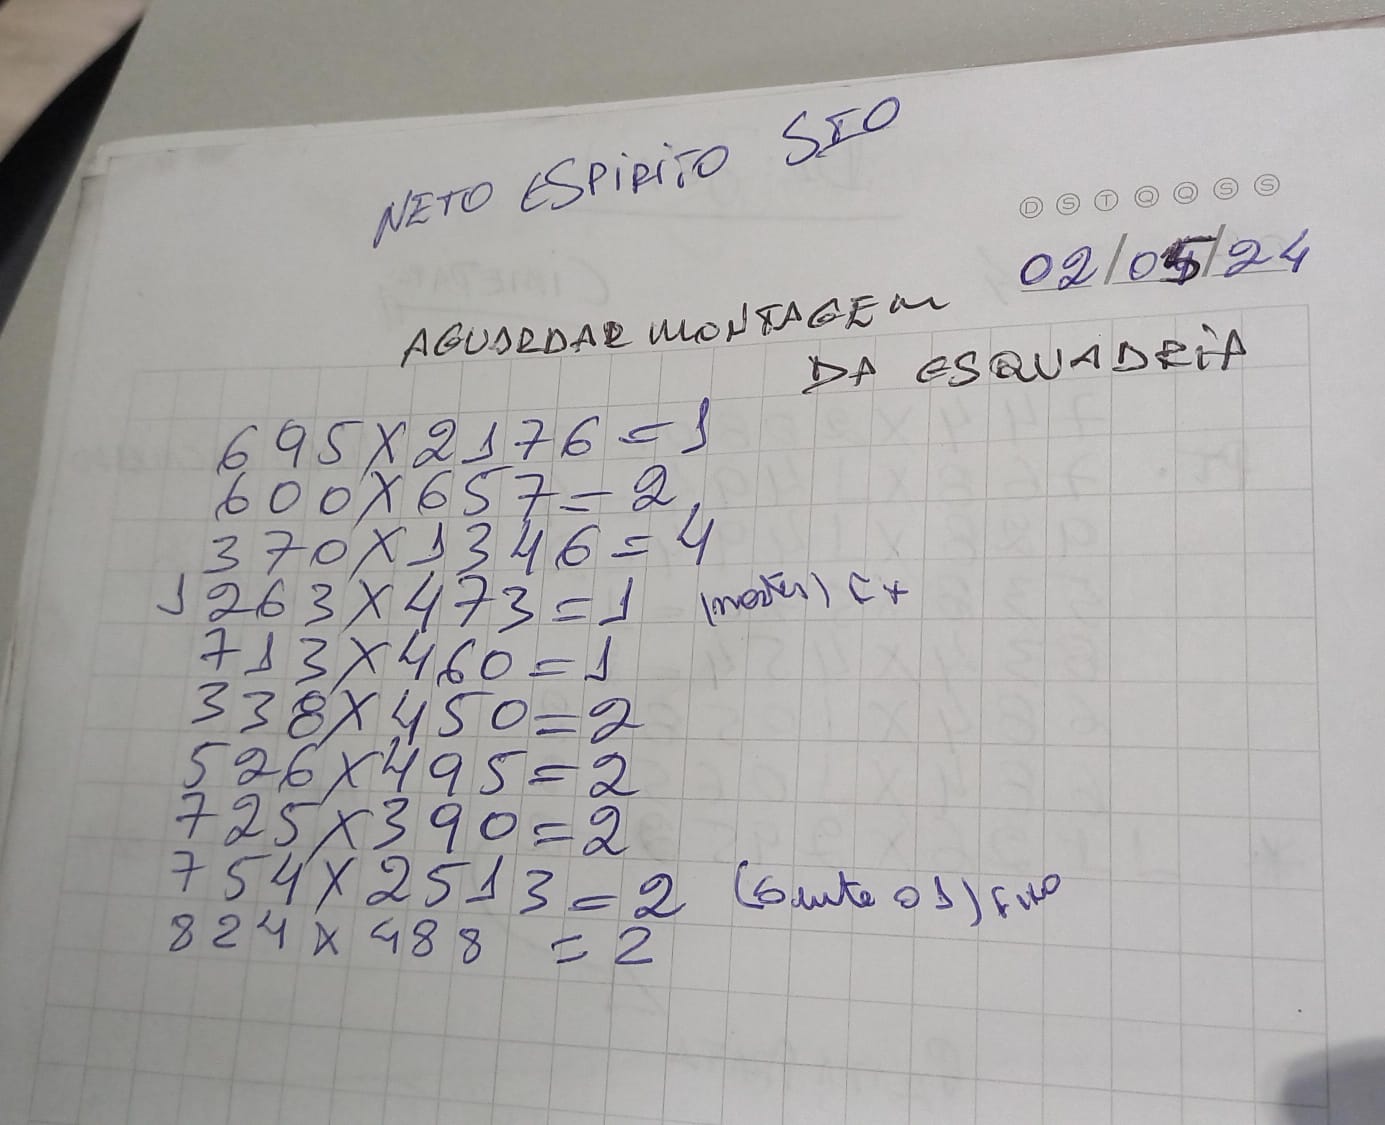 NETO ESPIRITO STO
D S T Q Q S S
02/05/24
AGUARDAR MONTAGEM
DA ESQUADRIA
695X2176=1
600X657=2
370X1346=4
1263X473=1
713X460=1
338X450=2
526X495=2
725X390=2
754X2513=2 (Somente 01) FIXO
824X488=2